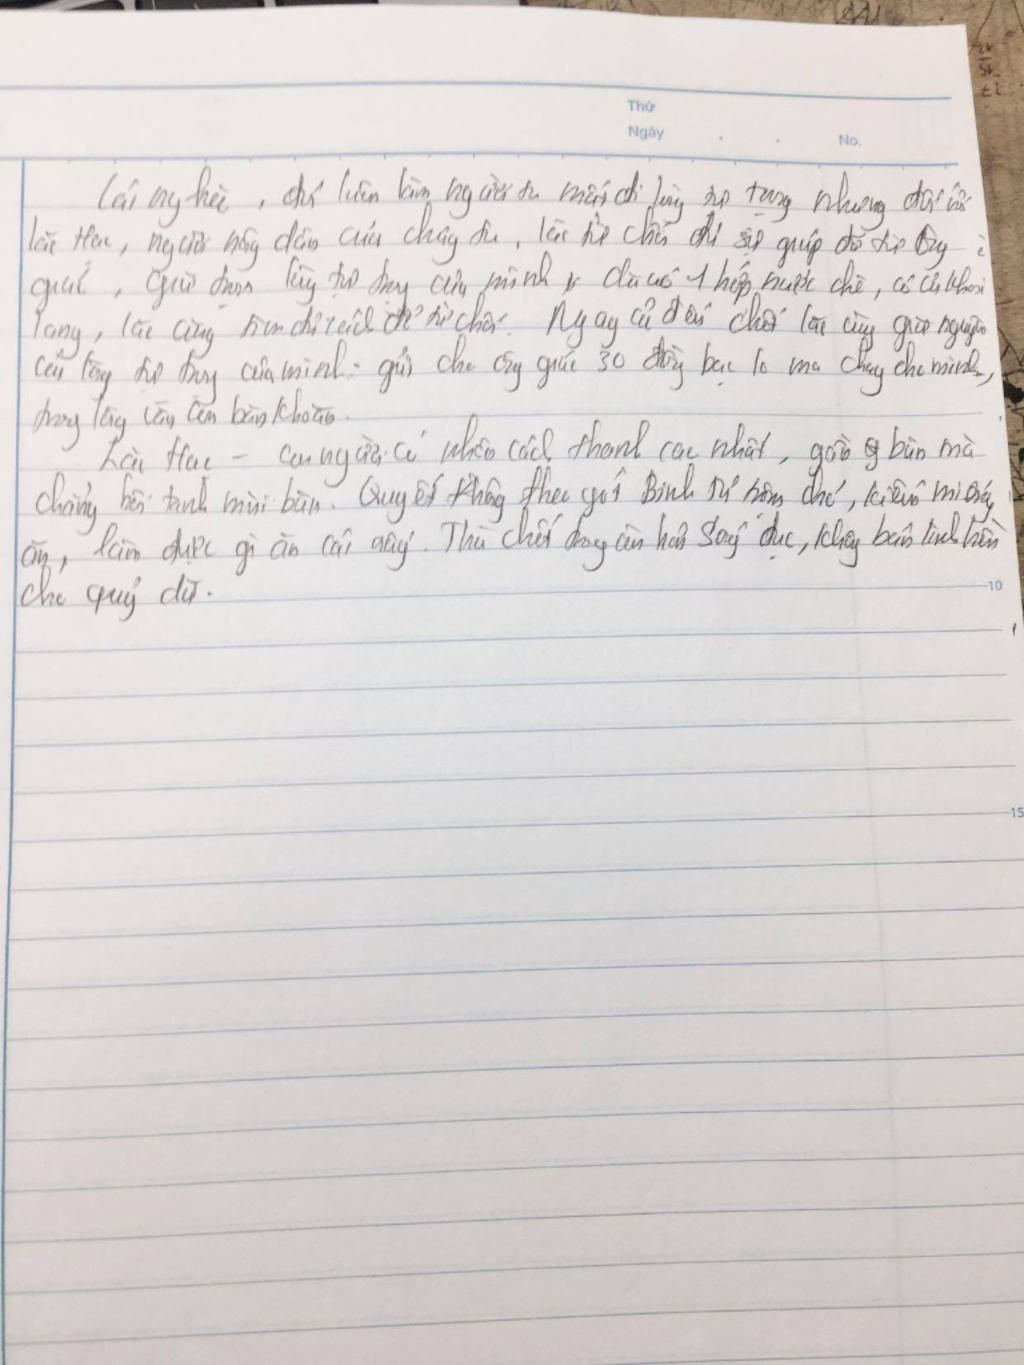 Thứ
Ngày
No.
Cái nghèo, đói luôn làm người ta mất đi lòng tự trọng nhưng đối với
lão Hạc, người nông dân của chúng ta, lão từ chối đi sự giúp đỡ từ ông
giáo, giữ lòng tự trọng của mình dù có 1 hớp nước chè, có củ khoai
lang, lão cũng tìm cách để từ chối. Ngay cả đến chết lão cũng giữ nguyên
cái lòng tự trọng của mình: gửi cho ông giáo 30 đồng bạc lo ma chay cho mình,
trong lòng vẫn còn băn khoăn.
Lão Hạc - con người có nhân cách thanh cao nhất, gần bùn mà
chẳng hôi tanh mùi bùn. Quyết không theo gót Binh Tư trộm chó, kiếm miếng
ăn, làm được gì ăn cái nấy. Thà chết trong còn hơn sống đục, không bán linh hồn
cho quỷ dữ.
10
15